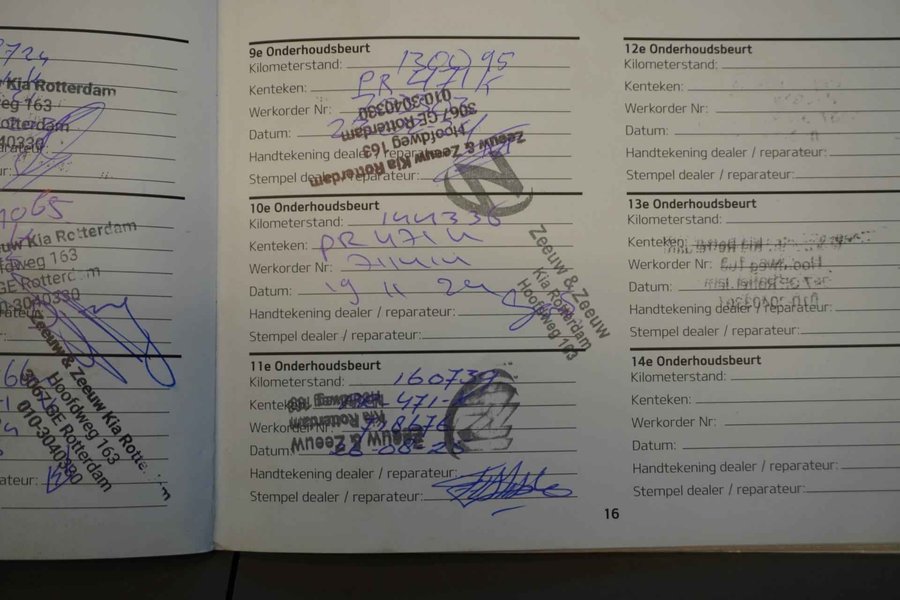 724
Kia Rotterdam
weg 163
Rotterdam
40330
1065
uw Kia Rotterdam
fdweg 163
GE Rotterdam
0-3040330
Zeeuw & Zeeuw Kia Rotterdam
Hoofdweg 163
3067 GE Rotterdam
010-3040330
ateur:
9e Onderhoudsbeurt
Kilometerstand: 130095
Kenteken: PR 471 K
Werkorder Nr:
Datum:
Handtekening dealer / reparateur:
Stempel dealer / reparateur:
Zeeuw & Zeeuw Kia Rotterdam
Hoofdweg 163
3067 GE Rotterdam
010-3040330
10e Onderhoudsbeurt
Kilometerstand: 144336
Kenteken:
Werkorder Nr:
Datum: 19 11 24
Handtekening dealer / reparateur:
Stempel dealer / reparateur:
Zeeuw & Zeeuw
Kia Rotterdam
Hoofdweg 163
11e Onderhoudsbeurt
Kilometerstand: 160739
Kenteken: 471-K
Werkorder Nr:
Datum: 26-08-25
Handtekening dealer / reparateur:
Stempel dealer / reparateur:
Zeeuw & Zeeuw
Kia Rotterdam
Hoofdweg 163
12e Onderhoudsbeurt
Kilometerstand:
Kenteken:
Werkorder Nr:
Datum:
Handtekening dealer / reparateur:
Stempel dealer / reparateur:
13e Onderhoudsbeurt
Kilometerstand:
Kenteken:
Werkorder Nr:
Datum:
Handtekening dealer / reparateur:
Stempel dealer / reparateur:
14e Onderhoudsbeurt
Kilometerstand:
Kenteken:
Werkorder Nr:
Datum:
Handtekening dealer / reparateur:
Stempel dealer / reparateur:
16